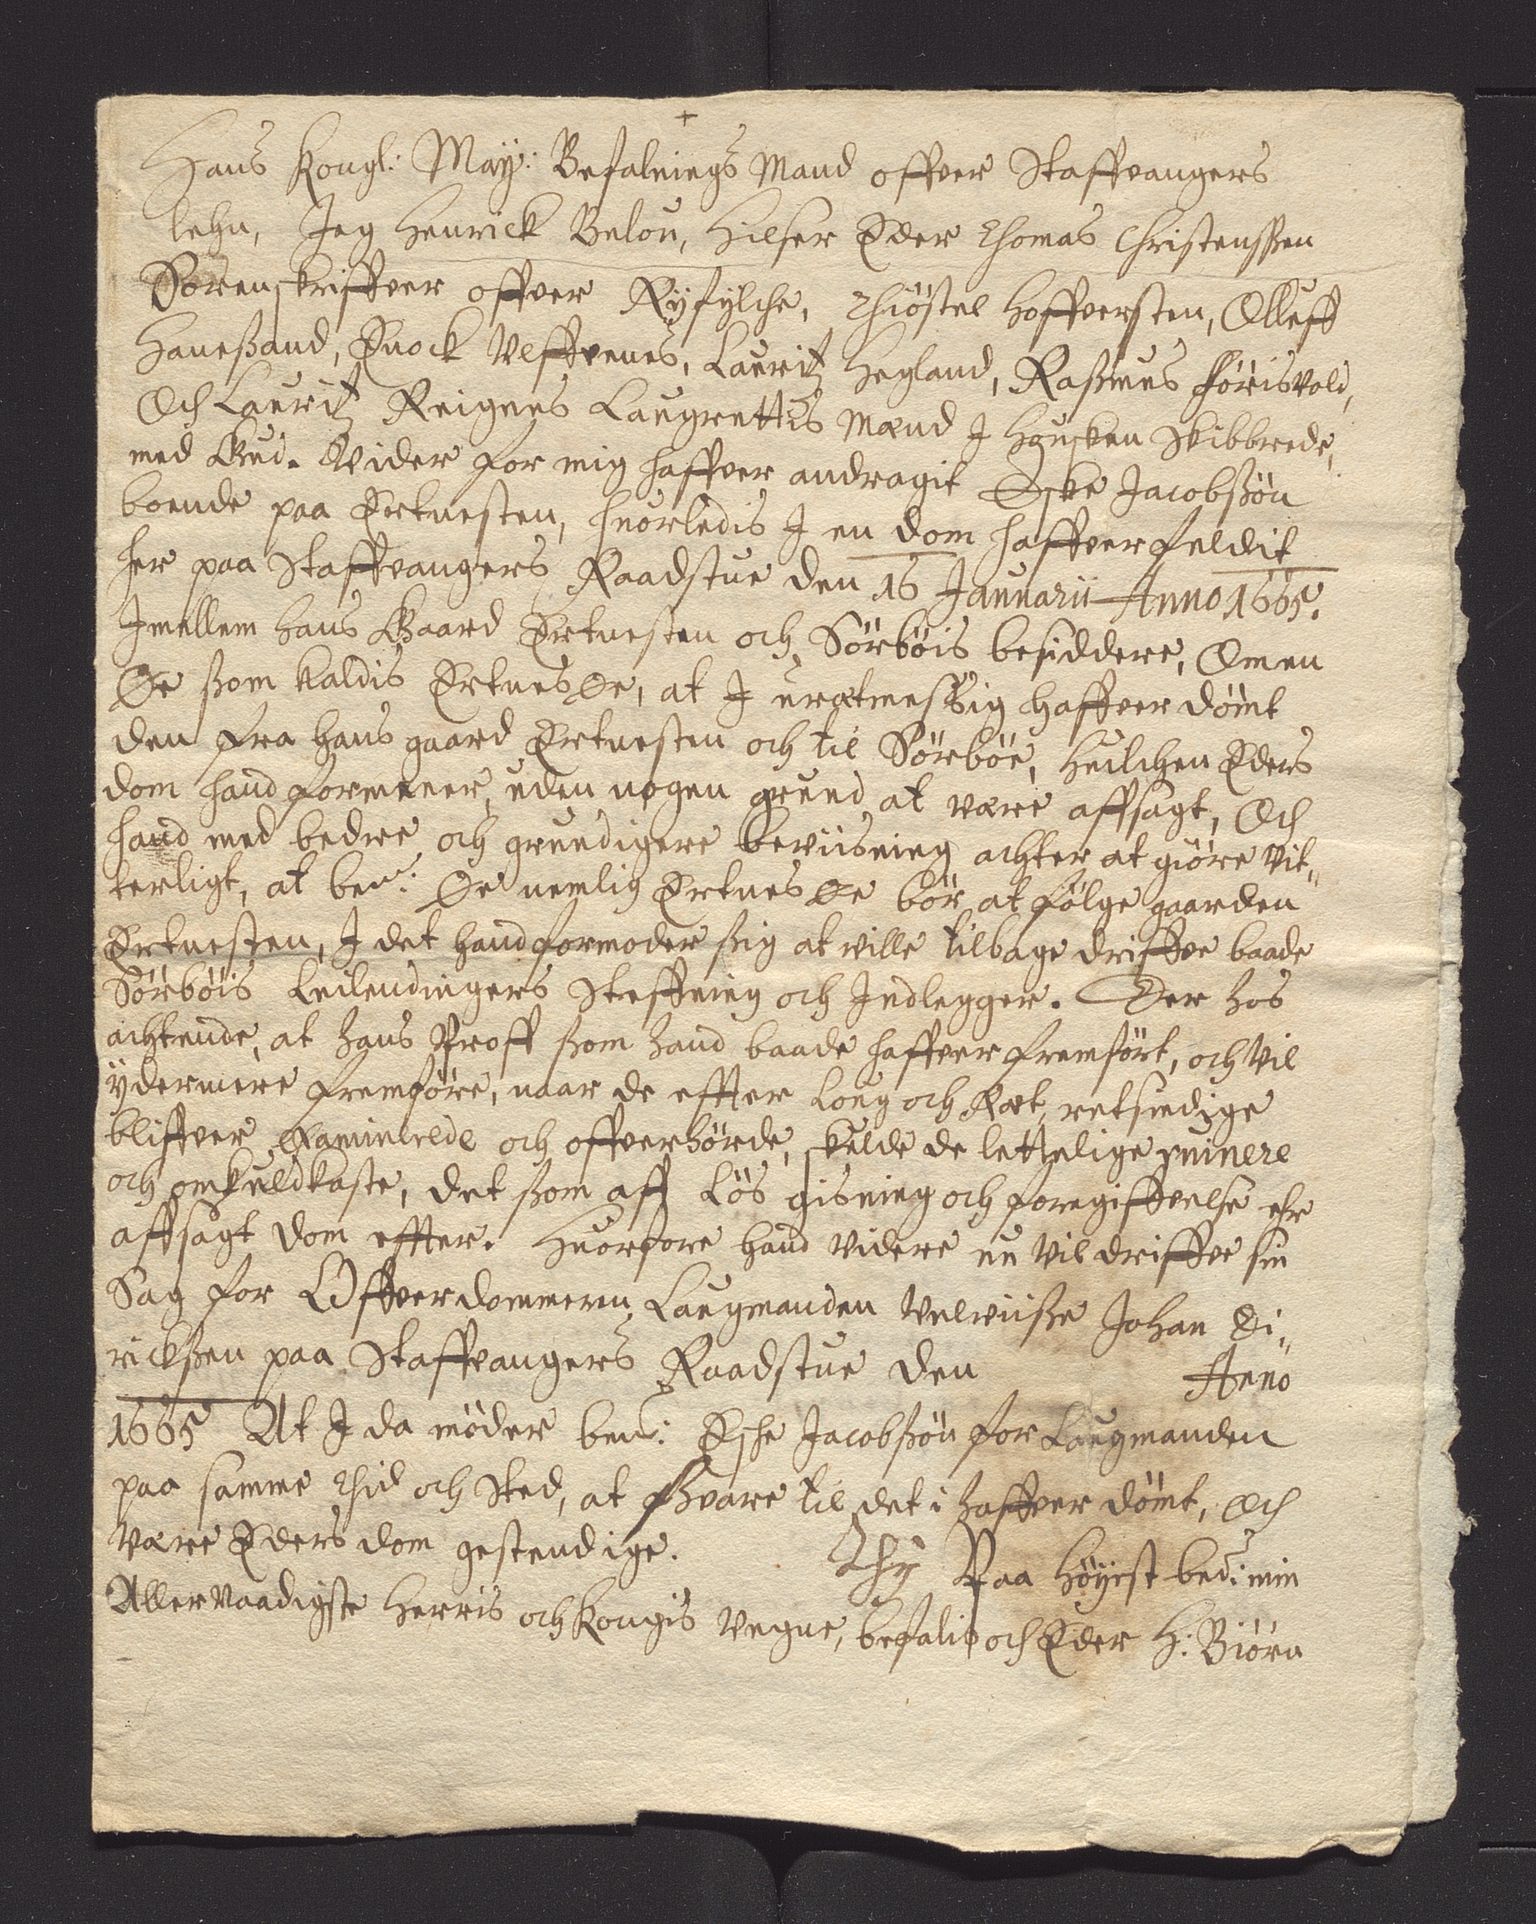 +
Hans Kongl: May: Befalnings Mand offver Staffvangers
lehn, Jeg Henrick Below, Hilser Eder Thomas Christenssen
Sorenskriffver offver Ryfylche, Thiöstel Hoffversten, Olluff
Haneßand, Enock Ulffvenes, Lauritz Hegland, Raßmus Förisvold,
Och Lauritz Reignes Laugrettis Mænd J Housken Skibbrede,
med Gud. Vider for mig haffver andragit Eske Jacobßön
boende paa Ertuesten, huorledis J en dom haffver feldit
her paa Staffvangers Raadstue den 16 Januarii Anno 1665.
Jmellem hans Gaard Ertuesten och Sörböis besiddere, Om en
Öe ßom kaldis Ertnes Öe, at J urætmessig haffver dömt
den fra hans gaard Ertuesten och til Sörböe, huilchen Eders
dom hand formener, uden nogen grund at være affsagt, Och
hand med bedre och grundigere beviisning achter at giöre vit„
terligt, at bem: Öe nemlig Ertnes Öe bör at fölge gaarden
Ertuesten, J det hand formoder ßig at ville tilbage driffve baade
Sörböis Leilendingers Steffning och Indlegger. Der hos
achtende, at hans Proff ßom hand baade haffver fremfört, och vil
ÿdermere fremföre, naar de effter Loug och Ræt, retsindige
bliffver Examinerede och offverhörde, skulde de lettelige ruinere
och omkuldkaste, det ßom aff Lös gisning och foregiffvelse ehr
affsagt dom effter. Huorfore hand videre nu vil driffve sin
Sag for Offverdommeren Laugmanden Velviiße Johan Di„
rickßen paa Staffvangers Raadstue den Anno
1665 At J da möder bem: Esche Jacobßön for Laugmanden
paa samme thid och sted, at ßvare til det i haffver dömt, Och
være Eders dom gestendige. Thj Paa höyest bem: min
Allernaadigste Herris och Kongis vegne, befalis och Eder H: Biörn